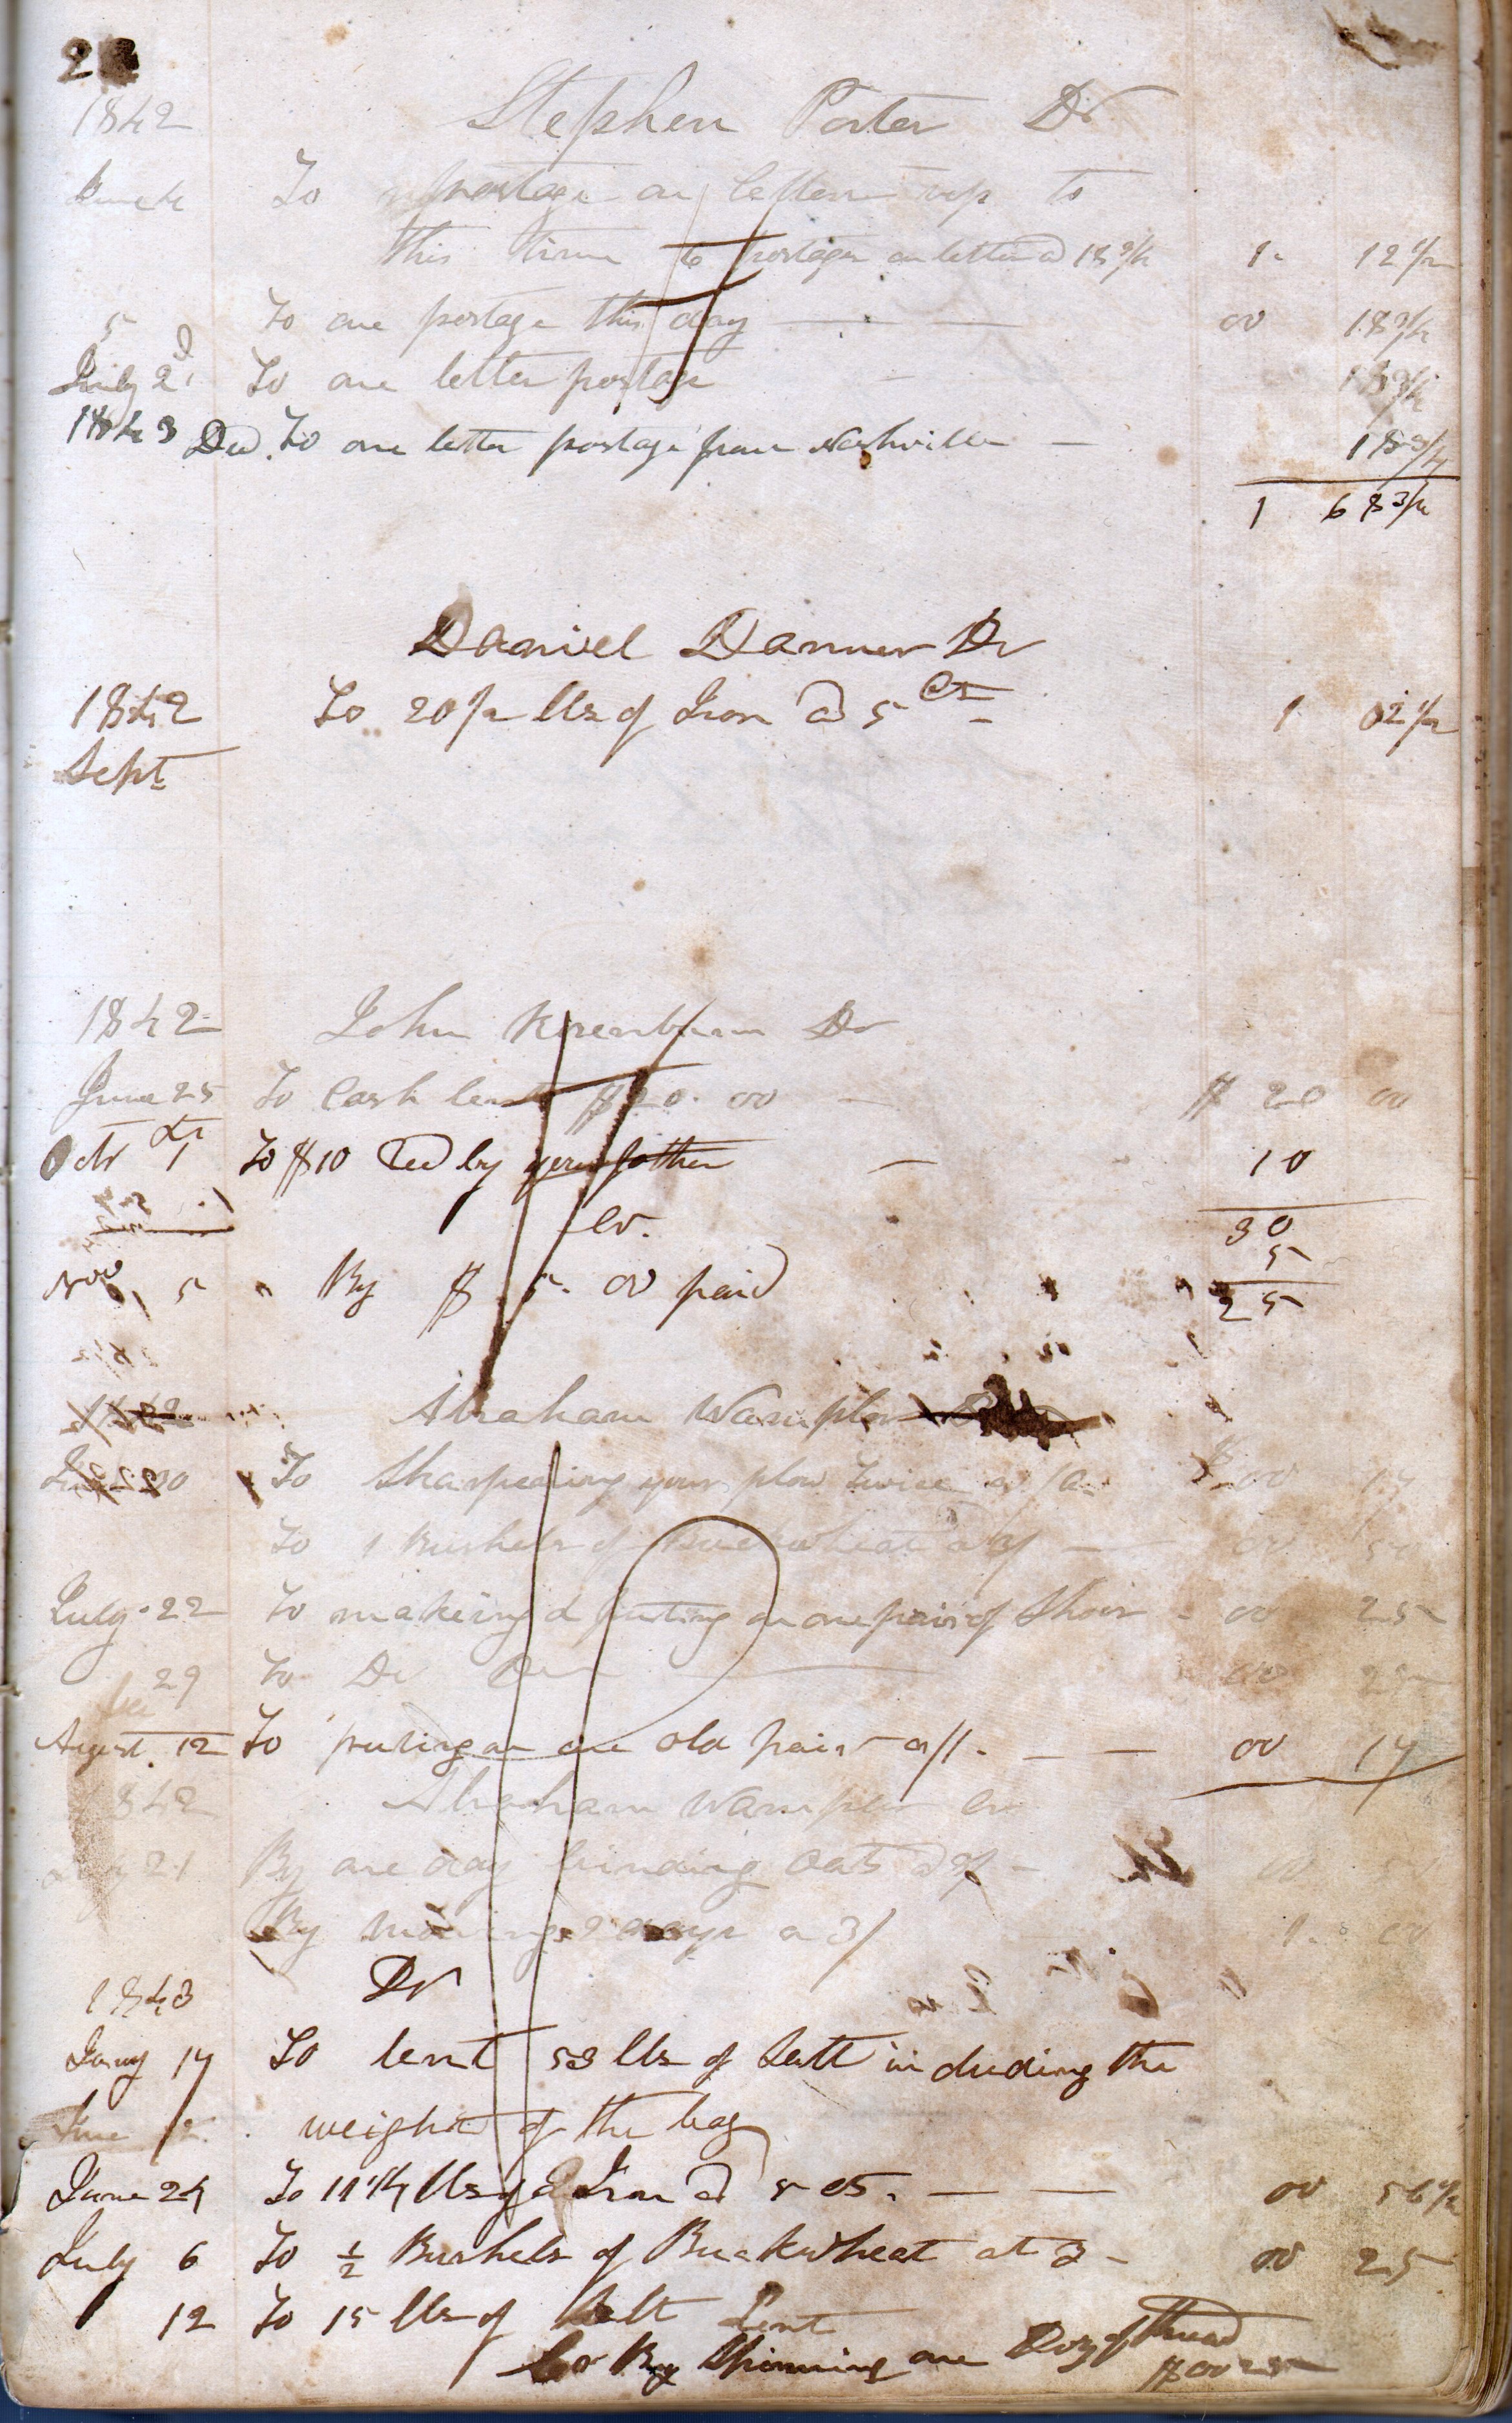 2
1842 Stephen Porter Dr
To postage on letters up to
this time 6 postages on letters @ 18 3/4 1. 12 1/2
5 To one postage this day 00 18 3/4
July 2d To one letter postage 18 3/4
1843 Dec. To one letter postage from Nashville 18 3/4
1 68 3/4
Daniel Danner Dr
1842 To 20 1/2 lbs of Iron @ 5 Cts 1 02 1/2
Sept
1842 John Dr
June 25 To Cash lent $20.00 $ 20 00
Octr 1st To $10 Recd by your father 10
Cr. 30
5
Nov, 5 " By $ 5.00 paid 25
1842 Abraham Wampler
30 To Sharpening your plow twice $ 00 17
To 1 Bushels of Buckwheat 00 50
July 22 To making & putting on one pair of Shoes 00 25
29 To Do Do 00 25
August 12 To puting on one old pair a/1. 00 17
1842 Abraham Wampler Cr
21 By one day binding Oats 00 50
By 2 days a 3/ 1. 00
1843 Dr
Jany 17 To lent 53 lbs of Salt including the
June weight of the bag
June 24 To 11 1/4 lbs of Iron @ 5 cts. 00 56 1/4
July 6 To 1/2 Bushels of Buckwheat at 3 - 00 25
12 To 15 lbs of Salt Lent
Cr By Spinning one Doz of thread
$00 25